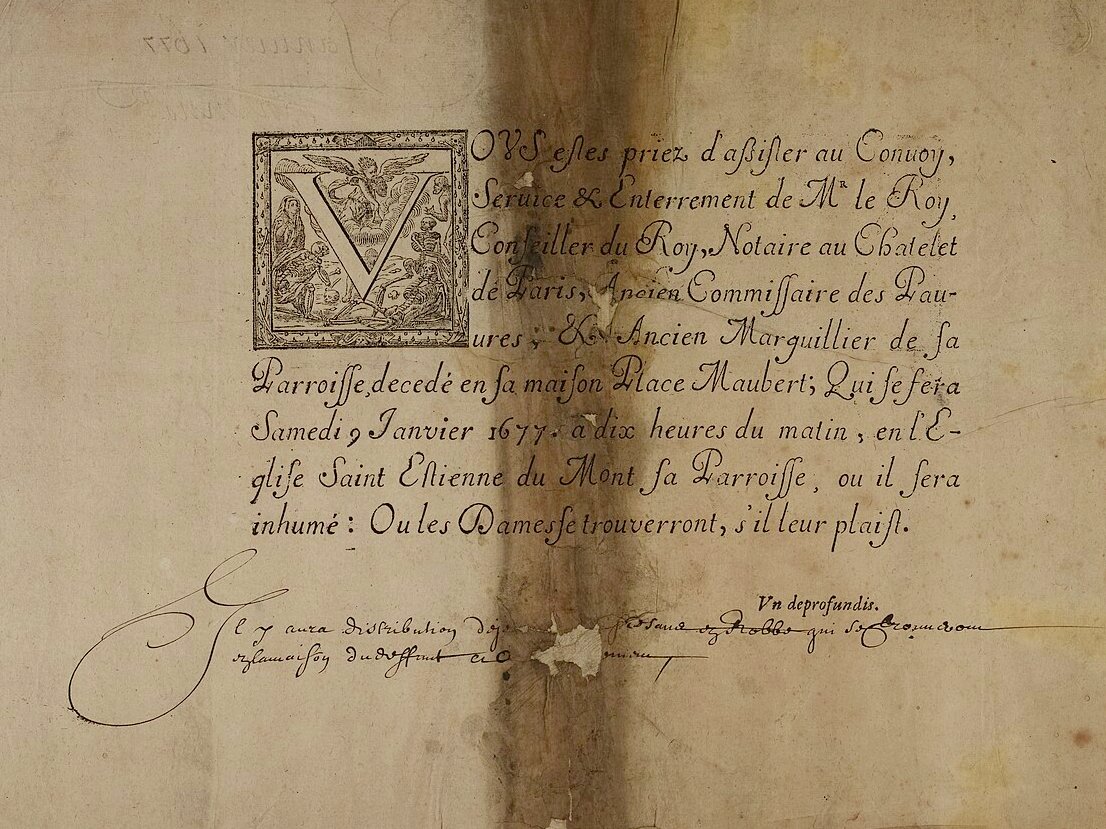 VOVS eſtes priez d'aßiſter au Convoy,
Seruice & Enterrement de Mᴿ le Roy,
Conſeiller du Roy, Notaire au Chatelet
de Paris, Ancien Commiſſaire des Pau-
ures, & Ancien Marguillier de ſa
Parroiſſe, decedé en ſa maiſon Place Maubert; Qui ſe fera
Samedi 9 Janvier 1677. a dix heures du matin, en l'E-
gliſe Saint Eſtienne du Mont ſa Parroiſſe, ou il ſera
inhumé: Ou les Dames ſe trouverront, s'il leur plaiſt.
Vn deprofundis.
Il y aura distribution qui se
en la maison du deffunt